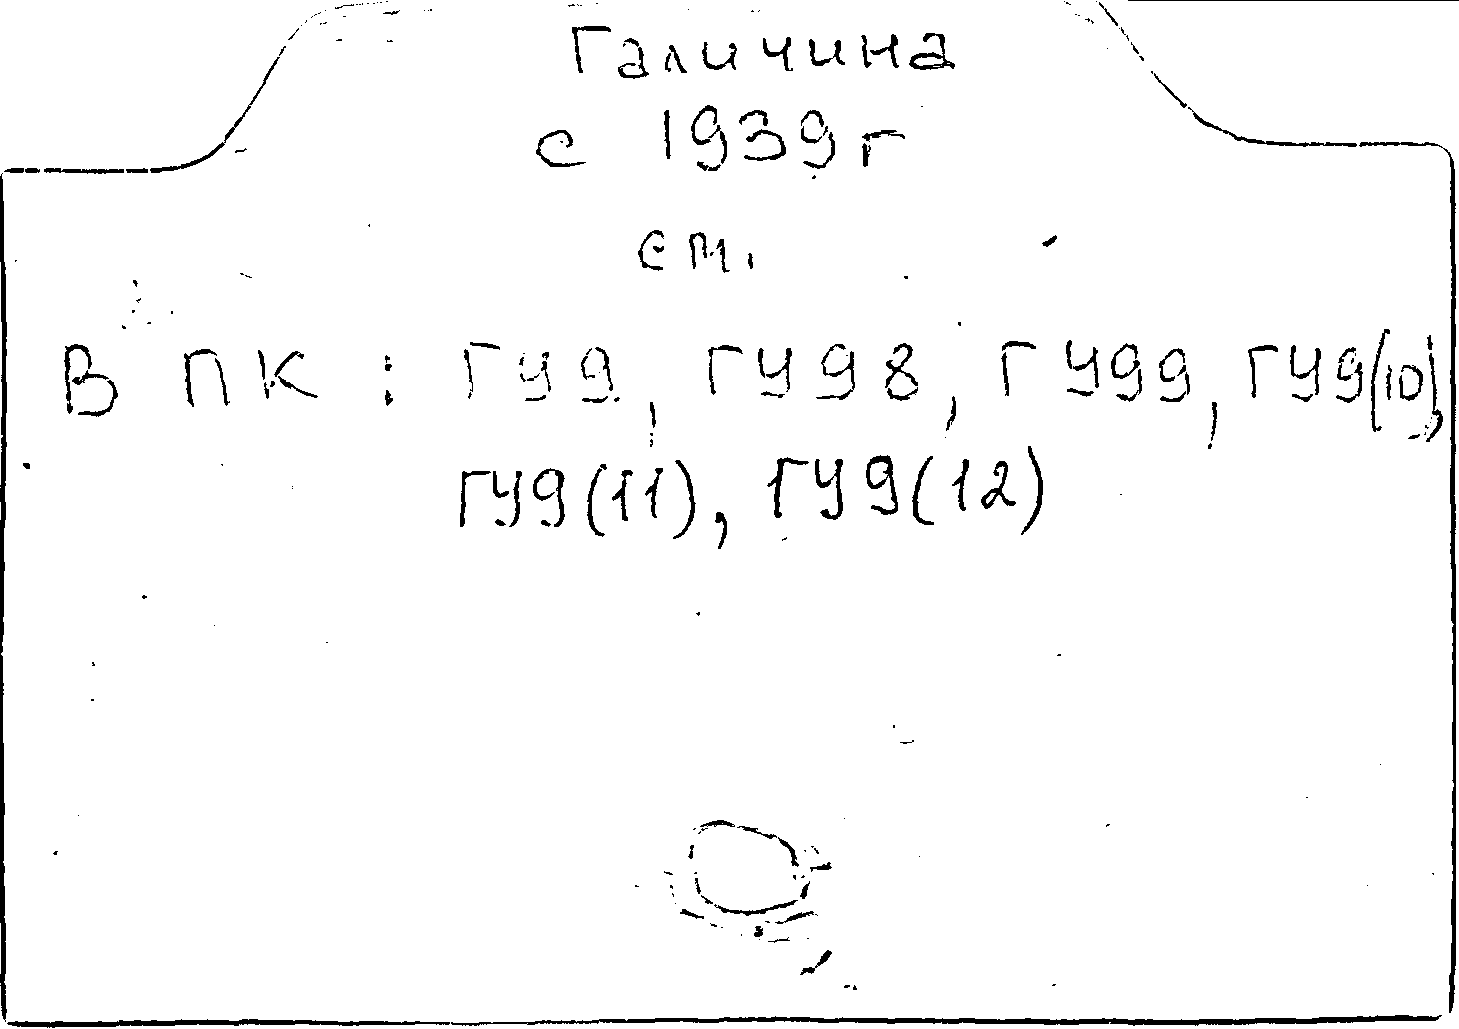 Галичина
с 1939 г
см.
В ПК : ГУ9, ГУ98, ГУ99, ГУ9(10),
ГУ9(11), ГУ9(12)